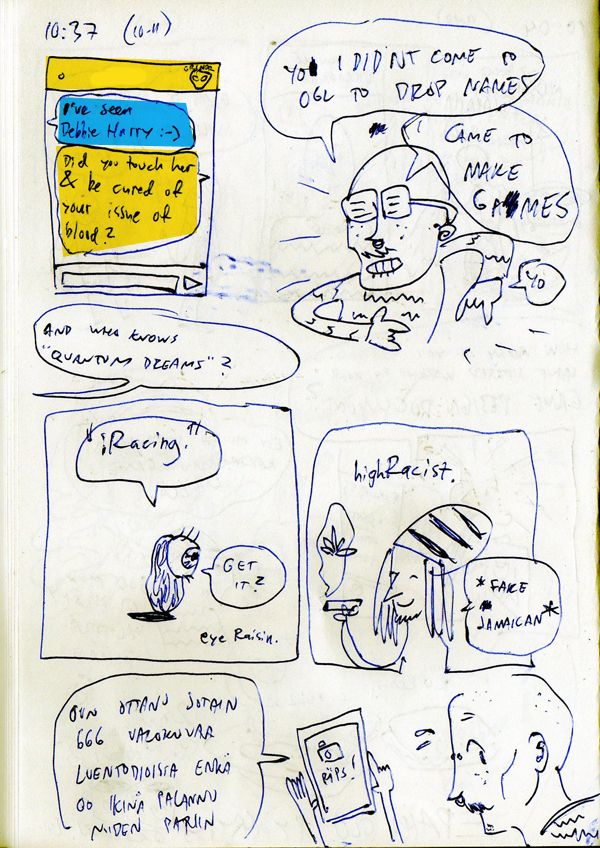 10:37 (10-11)
I've seen
Debbie Harry :-)
Did you touch her
& be cured of
your issue of
blood?
YO I DIDN'T COME TO
OGL TO DROP NAMES
I CAME TO
MAKE
GAMES
YO
AND WHO KNOWS
"QUANTUM DREAMS"?
"¡Racing!"
GET
IT?
eye Raisin.
highRacist.
*FAKE
JAMAICAN*
OON OTTANU JOTAIN
666 VALOKUVAA
LUENTODIOISTA ENKÄ
OO IKINÄ PALANNU
NIIDEN PARIIN
RÄPS!